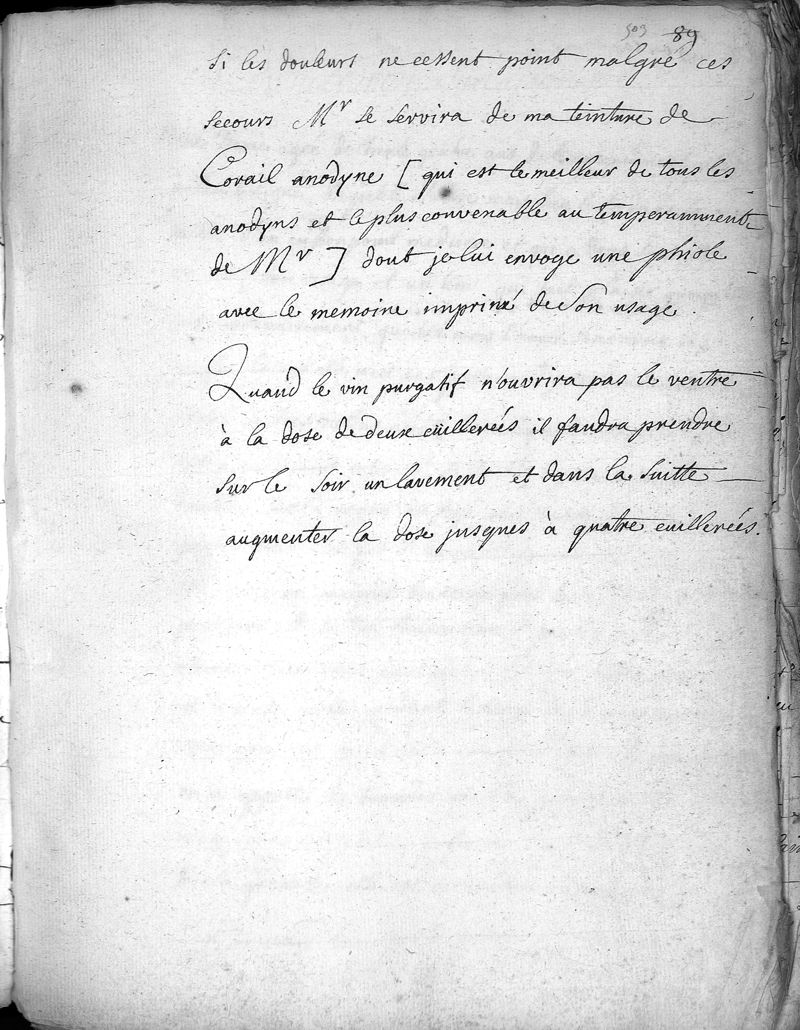 503 89
si les douleurs ne cessent point malgré ces
secours Mr se servira de ma teinture de
Corail anodyne [ qui est le meilleur de tous les
anodyns et le plus convenable au temperamment
de Mr ] dont je lui envoye une phiole
avec le memoire imprimé de son usage.
Quand le vin purgatif n'ouvrira pas le ventre
à la dose de deux cuillereés il faudra prendre
sur le soir un lavement et dans la suitte
augmenter la dose jusques à quatre cuillereés.